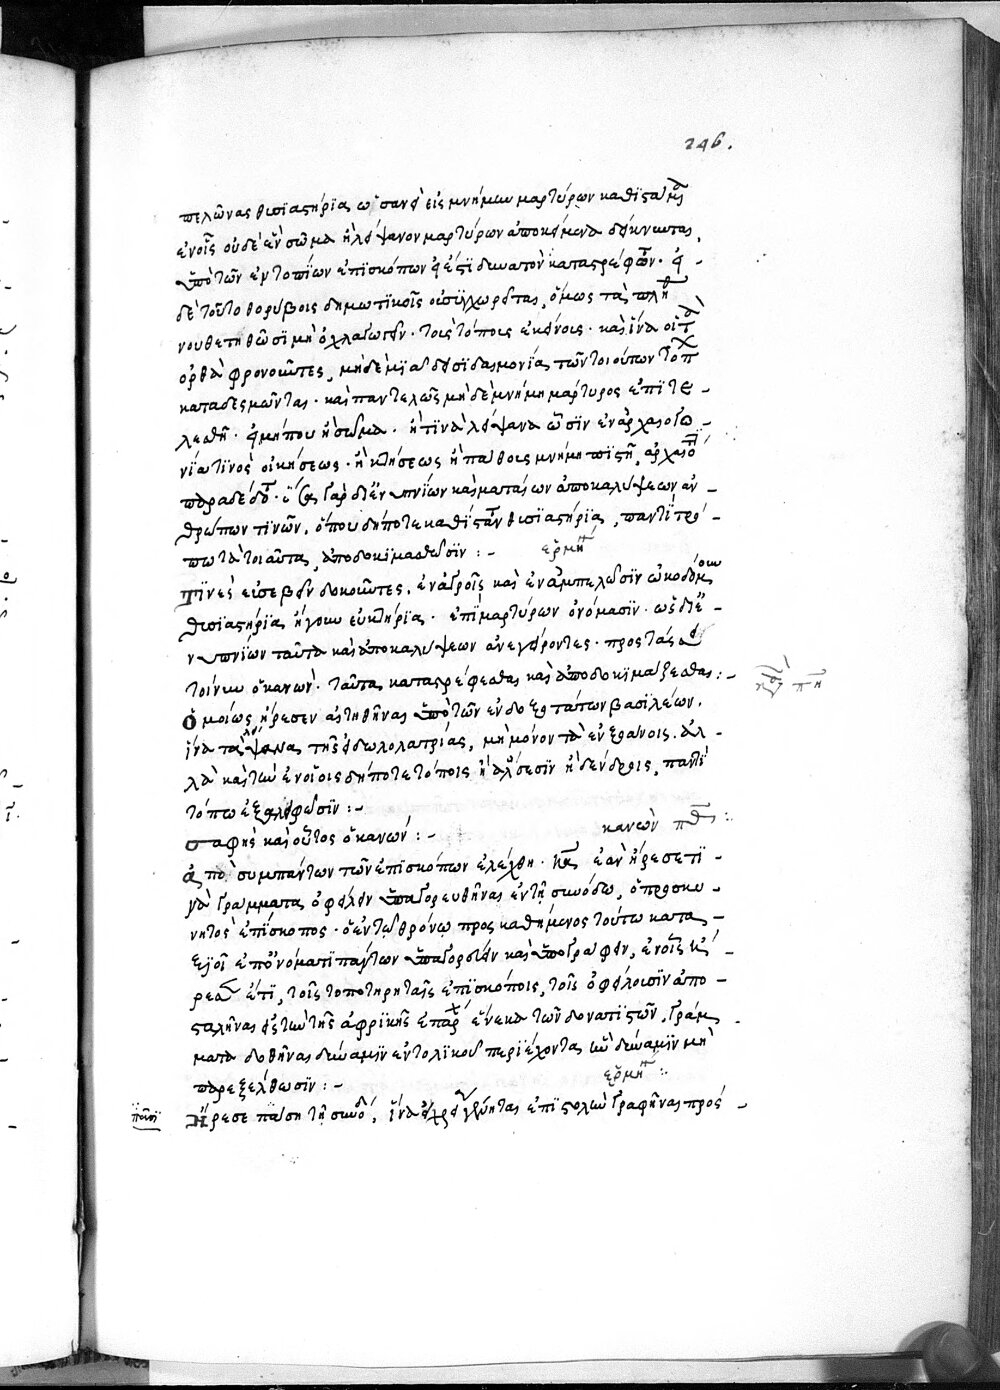 246.
πελῶνας θυσιαστήρια ὡσανεὶ εἰς μνήμην μαρτύρων καθίσταμ
ἐν οἷς οὐδὲ ἓν σῶμα ἢ λείψανον μαρτύρων ἀποκείμενα δείκνυται,
ὑπὸ τῶν ἐντοπίων ἐπισκόπων εἰ ἔστι δυνατὸν καταστρεφῶν. εἰ
δὲ τοῦτο θορύβοις δημωτικοῖς οὐ συγχωρεῖται, ὅμως τὰ πλήθ
νουθετηθῶσι μὴ ὀχλαγωγεῖν τοῖς τόποις ἐκείνοις. καὶ ἵνα οἱ τ
ὀρθὰ φρονοῦντες, μηδεμιᾷ δεισιδαιμονίᾳ τῶν τοιούτων τόπ
καταδεσμῶνται. καὶ παντελῶς μηδὲ μνήμη μάρτυρος ἐπιτε
λεσθῇ. εἰ μήπου ἢ σῶμα. ἤ τινα λείψανα ὦσιν ἐναρχαιογο
νία τινὸς οἰκήσεως. ἢ κτήσεως ἢ πάθους μνήμη πιστῇ ἀρχαιό
παραδέδο. αἱ γὰρ δι' ἐνυπνίων καὶ ματαίων ἀποκαλύψεων ἀν
θρώπων τινῶν, ὅπου δήποτε καθιστᾶν θυσιαστήρια, παντὶ τρό
πω τὰ τοιαῦτα ἀποδοκιμασθῶσιν :- ἑρμη
Τινὲς εὐσεβεῖν δοκοῦντες, ἐν ἀγροῖς καὶ ἐν ἀμπελῶσιν ὠκοδόμουν
θυσιαστήρια ἤγουν εὐκτήρια. ἐπὶ μαρτύρων ὀνόμασιν. ὡς δι' ἐ
νυπνίων ταῦτα καὶ ἀποκαλύψεων ἀνεγείροντες. προστάσσει
τοίνυν ὁ κανών. ταῦτα καταστρέφεσθαι καὶ ἀποδοκιμάζεσθαι :-
Ὁμοίως ἤρεσεν αἰτηθῆναι ὑπὸ τῶν ἐνδοξοτάτων βασιλέων.
ἵνα τὰ λείψανα τῆς εἰδωλολατρίας, μὴ μόνον τὰ ἐν ξοάνοις. ἀλ
λὰ καὶ τὰ ἐν οἷοις δήποτε τόποις ἢ ἄλσεσιν ἢ δένδροις, παντὶ
τόπω ἐξαλειφῶσιν :-
σαφὴς καὶ οὗτος ὁ κανών :- κανὼν πθ
Ἀπὸ συμπάντων τῶν ἐπισκόπων ἐλέχθη. καὶ ἐὰν ἤρεσε τι
νὰ γράμματα ὀφείλειν ὑπαγορευθῆναι ἐν τῇ συνόδω, ὁ προσκυ
νητὸς ἐπίσκοπος. ὁ ἐν τῷ θρόνῳ προκαθήμενος τούτω κατα
ξιοῖ ἐπ' ὀνόματι πάντων ὑπαγορεύειν καὶ ὑπογράφειν, ἐν οἷς κ ἤ
ρεσεν ἔτι, τοῖς τοποτηρηταῖς ἐπισκόποις, τοῖς ὀφείλουσιν ἀπο
σταλῆναι εἰς τὴν τῆς ἀφρικῆς ἐπαρχ ἕνεκα τῶν δονατιστῶν, γράμ
ματα δοθῆναι δύναμιν ἐντολικοῦ περιέχοντα ἣν δύναμιν μὴ
παρεξέλθωσιν :- ἑρμη
Ἤρεσε πάση τῇ συνόδ, ἵνα ἐπιστολὴν γραφῆναι πρὸς